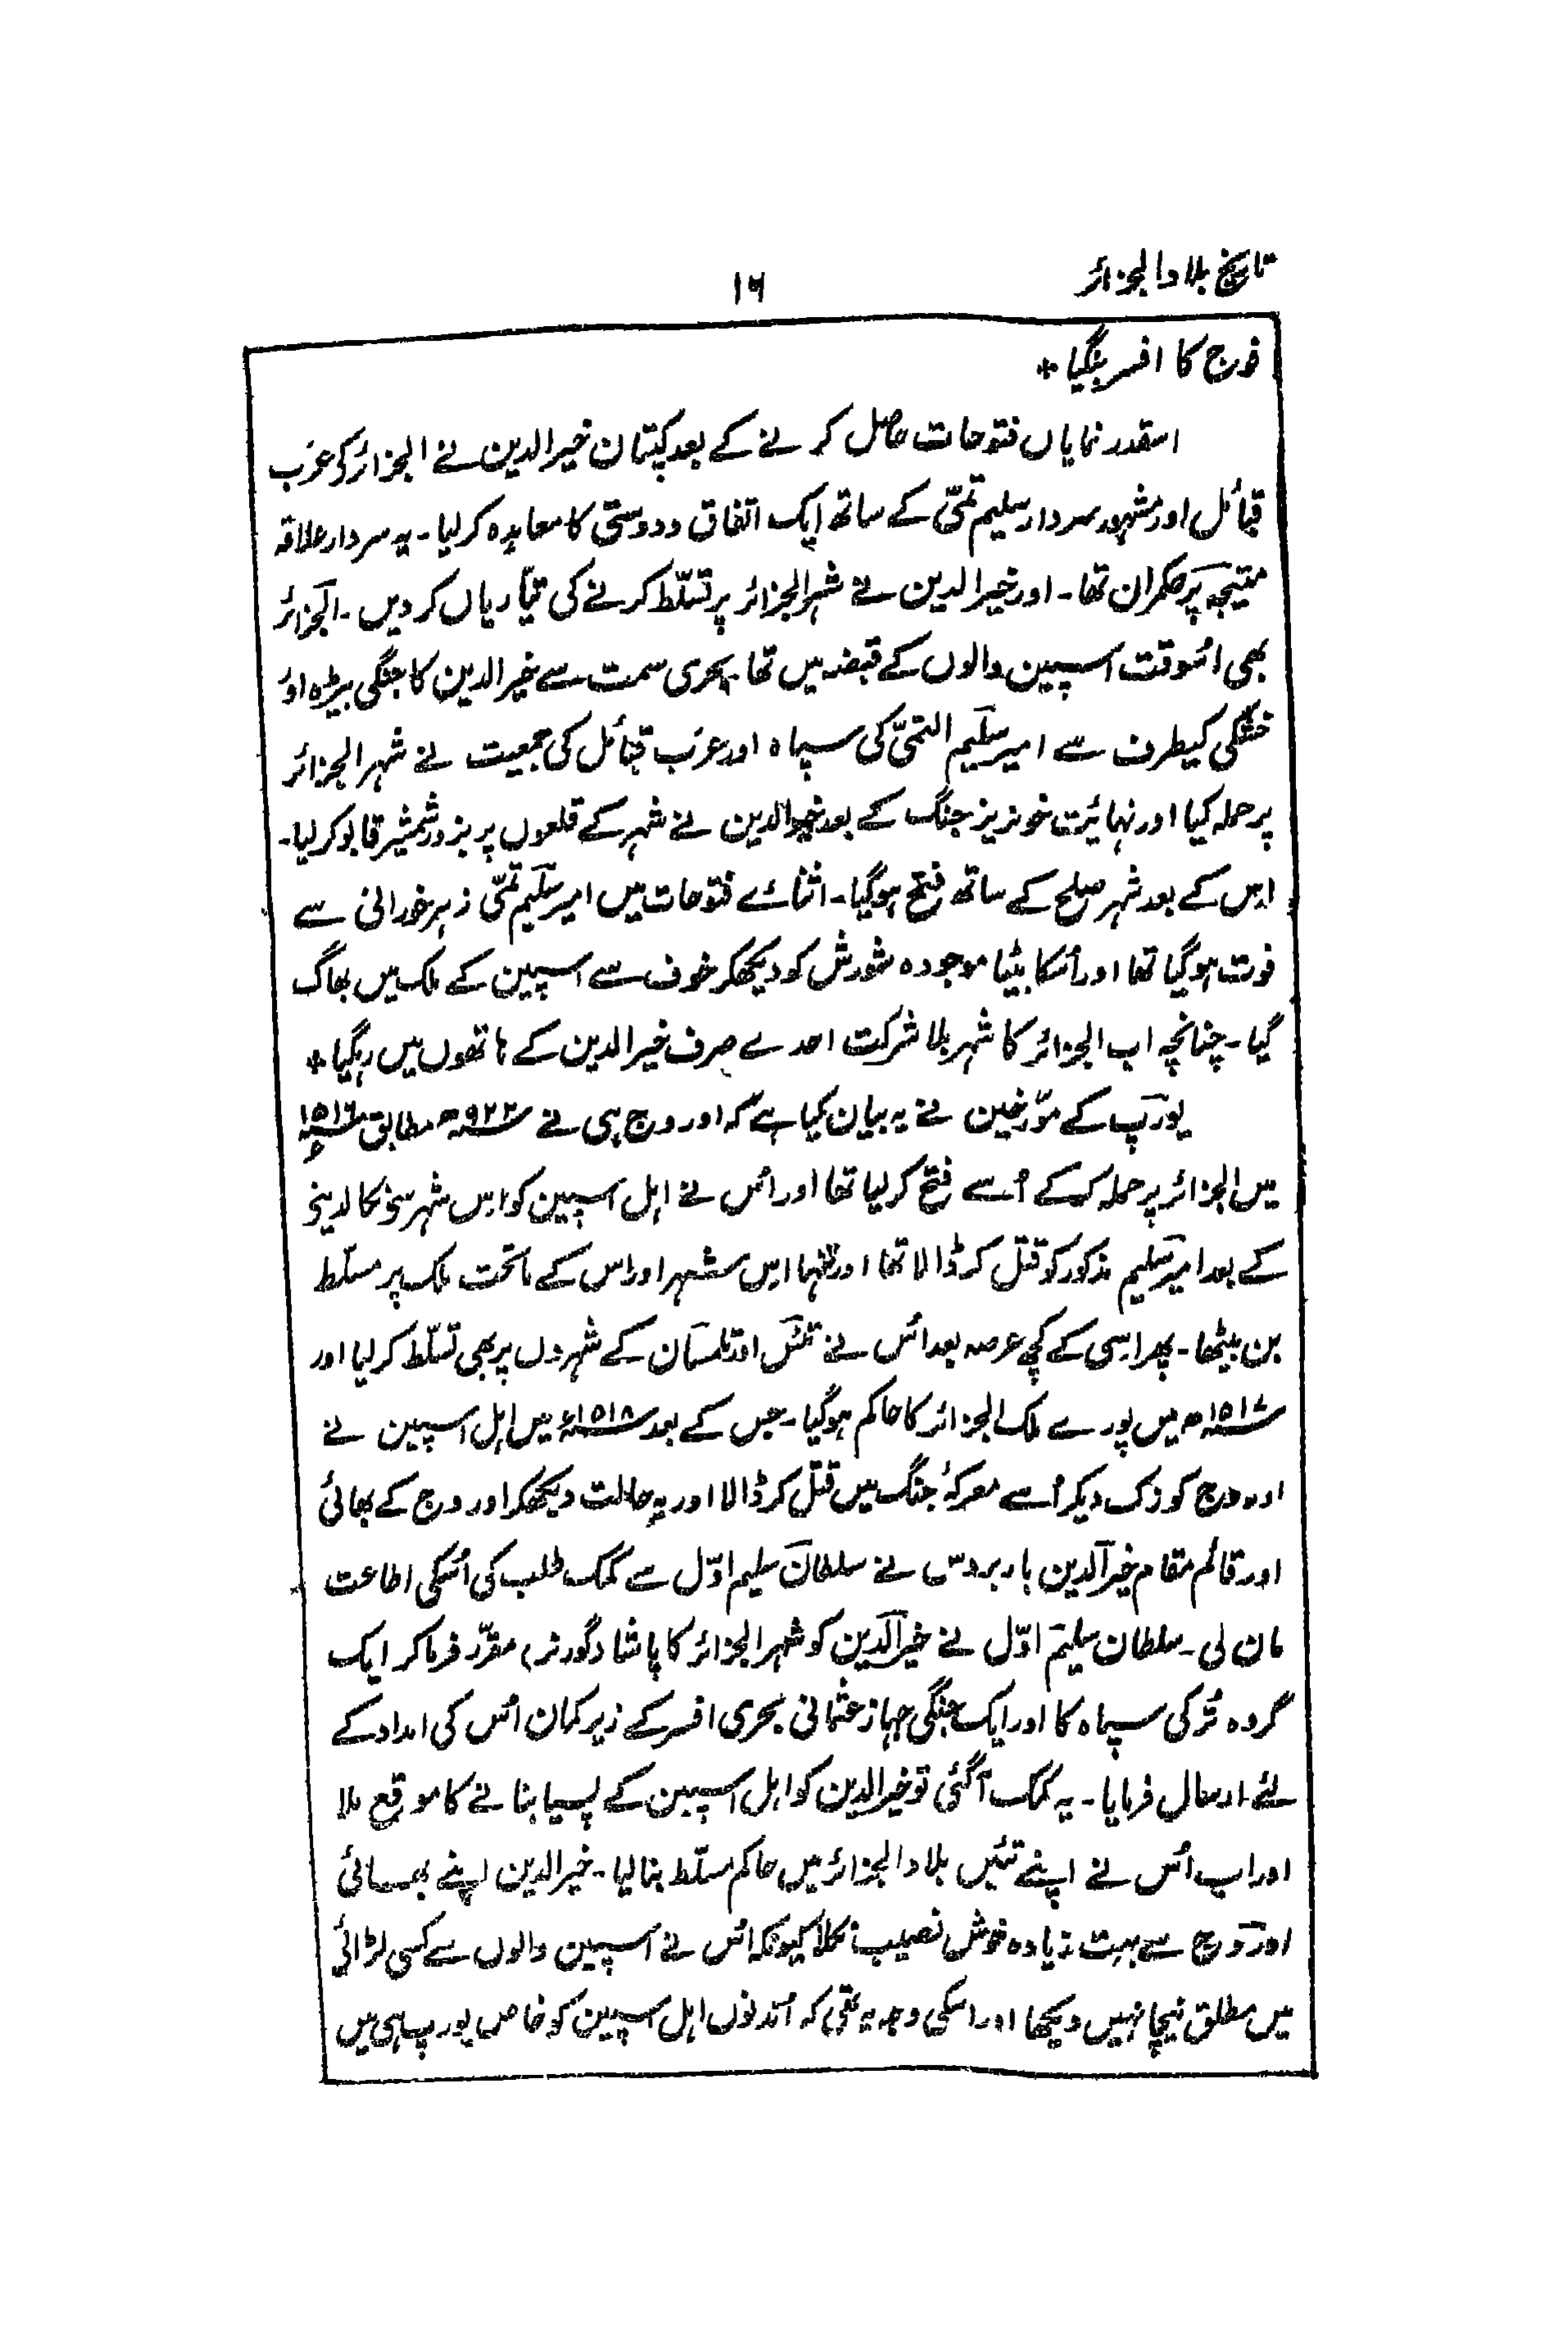 تاریخ بلاد الجزائر
۱۶
فوج کا افسر بنگیا *
اسقدر نمایاں فتوحات حاصل کرنے کے بعد کپتان خیرالدین نے الجزائر کی عرب
قبائل اور مشہور سردار سلیم تمیّ کے ساتھ ایک اتفاق و دوستی کا معاہدہ کرلیا۔ یہ سردار علاقہ
متیجہ پر حکمران تھا۔ اور خیرالدین نے شہر الجزائر پر تسلّط کرنے کی تیّاریاں کردیں۔ الجزائر
بھی اُسوقت اسپین والوں کے قبضہ میں تھا۔ بحری سمت سے خیرالدین کا جنگی بیڑہ اور
خشکی کیطرف سے امیر سلیم التمیّ کی سپاہ اور عرب قبائل کی جمعیت نے شہر الجزائر
پر حملہ کیا اور نہائیت خونریز جنگ کے بعد خیرالدین نے شہر کے قلعوں پر بزور شمشیر قابو کرلیا۔
اِس کے بعد شہر صلح کے ساتھ فتح ہوگیا۔ اثنائے فتوحات میں امیر سلیم تمیّ زہر خورانی سے
فوت ہوگیا تھا اور اُسکا بیٹا موجودہ شورش کو دیکھکر خوف سے اسپین کے ملک میں بھاگ
گیا۔ چنانچہ اب الجزائر کا شہر بلا شرکت احدے صرف خیرالدین کے ہاتھوں میں رہگیا *
یورپ کے مؤرّخین نے یہ بیان کیا ہے کہ اوروج ہی نے ۹۲۲ھ مطابق ۱۵۱۶ء
میں الجزائر پر حملہ کرکے اُسے فتح کرلیا تھا اور اُس نے اہل اسپین کو اِس شہر سے نکالدینے
کے بعد امیر سلیم مذکور کو قتل کر ڈالا تھا اور تنہا اِس شہر اور اس کے ماتحت ملک پر مسلّط
بن بیٹھا۔ پھر اِسی کے کچھ عرصہ بعد اُس نے تنس اور تلمسان کے شہروں پر بھی تسلّط کرلیا اور
۱۵۱۷ء میں پورے ملک الجزائر کا حاکم ہوگیا۔ جس کے بعد ۱۵۱۸ء میں اہل اسپین نے
اوروج کو زک دیکر اُسے معرکۂ جنگ میں قتل کر ڈالا اور یہ حالت دیکھکر اوروج کے بھائی
اور قائم مقام خیرالدین باربروس نے سلطان سلیم اوّل سے کمک طلب کی اُسکی اطاعت
مان لی۔ سلطان سلیم اوّل نے خیرالدین کو شہر الجزائر کا پاشا (گورنر) مقرّر فرماکر ایک
گروہ تُرکی سپاہ کا اور ایک جنگی جہاز عثمانی بحری افسر کے زیر کمان اُس کی امداد کے
لئے ارسال فرمایا۔ یہ کمک آگئی تو خیرالدین کو اہل اسپین کے پسپا بنانے کا موقع ملا
اور اب اُس نے اپنے تئیں بلاد الجزائر میں حاکم مسلّط بنالیا۔ خیرالدین اپنے بھائی
اوروج سے بہت زیادہ خوش نصیب نکلا کیونکہ اُس نے اسپین والوں سے کسی لڑائی
میں مطلق نیچا نہیں دیکھا اور اسکی وجہ یہ تھی کہ اُندنوں اہل اسپین کو خاص یورپ ہی میں